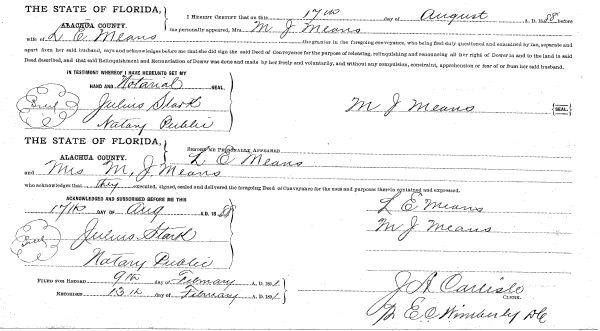 THE STATE OF FLORIDA,
ALACHUA COUNTY.
I HEREBY CERTIFY that on this 17th day of August A. D. 1888 before
me personally appeared, Mrs. M J Means
wife of L E Means the grantor in the foregoing conveyance, who being first duly questioned and examined by me, separate and
apart from her said husband, says and acknowledges before me that she did sign the said Deed of Conveyance for the purpose of releasing, relinquishing and renouncing all her right of Dower in and to the land in said
Deed described, and that said Relinquishment and Renunciation of Dower was done and made by her freely and voluntarily, and without any compulsion, constraint, apprehension or fear of or from her said husband.
IN TESTIMONY WHEREOF I HAVE HEREUNTO SET MY
HAND AND Notarial SEAL.
Seal
Julius Stark
Notary Public
M J Means SEAL.
THE STATE OF FLORIDA,
ALACHUA COUNTY.
BEFORE ME PERSONALLY APPEARED
L E Means
and Mrs M, J Means
who acknowledges that they executed, signed, sealed and delivered the foregoing Deed of Conveyance for the uses and purposes therein contained and expressed.
ACKNOWLEDGED AND SUBSCRIBED BEFORE ME THIS
17th DAY OF Aug A. D. 1888
L E Means
M J Means
Seal
Julius Stark
Notary Public
FILED FOR RECORD 9th day of February A. D. 1891
RECORDED 13th day of February A. D. 1891
J A Carlisle
CLERK.
E C Wimberly DC